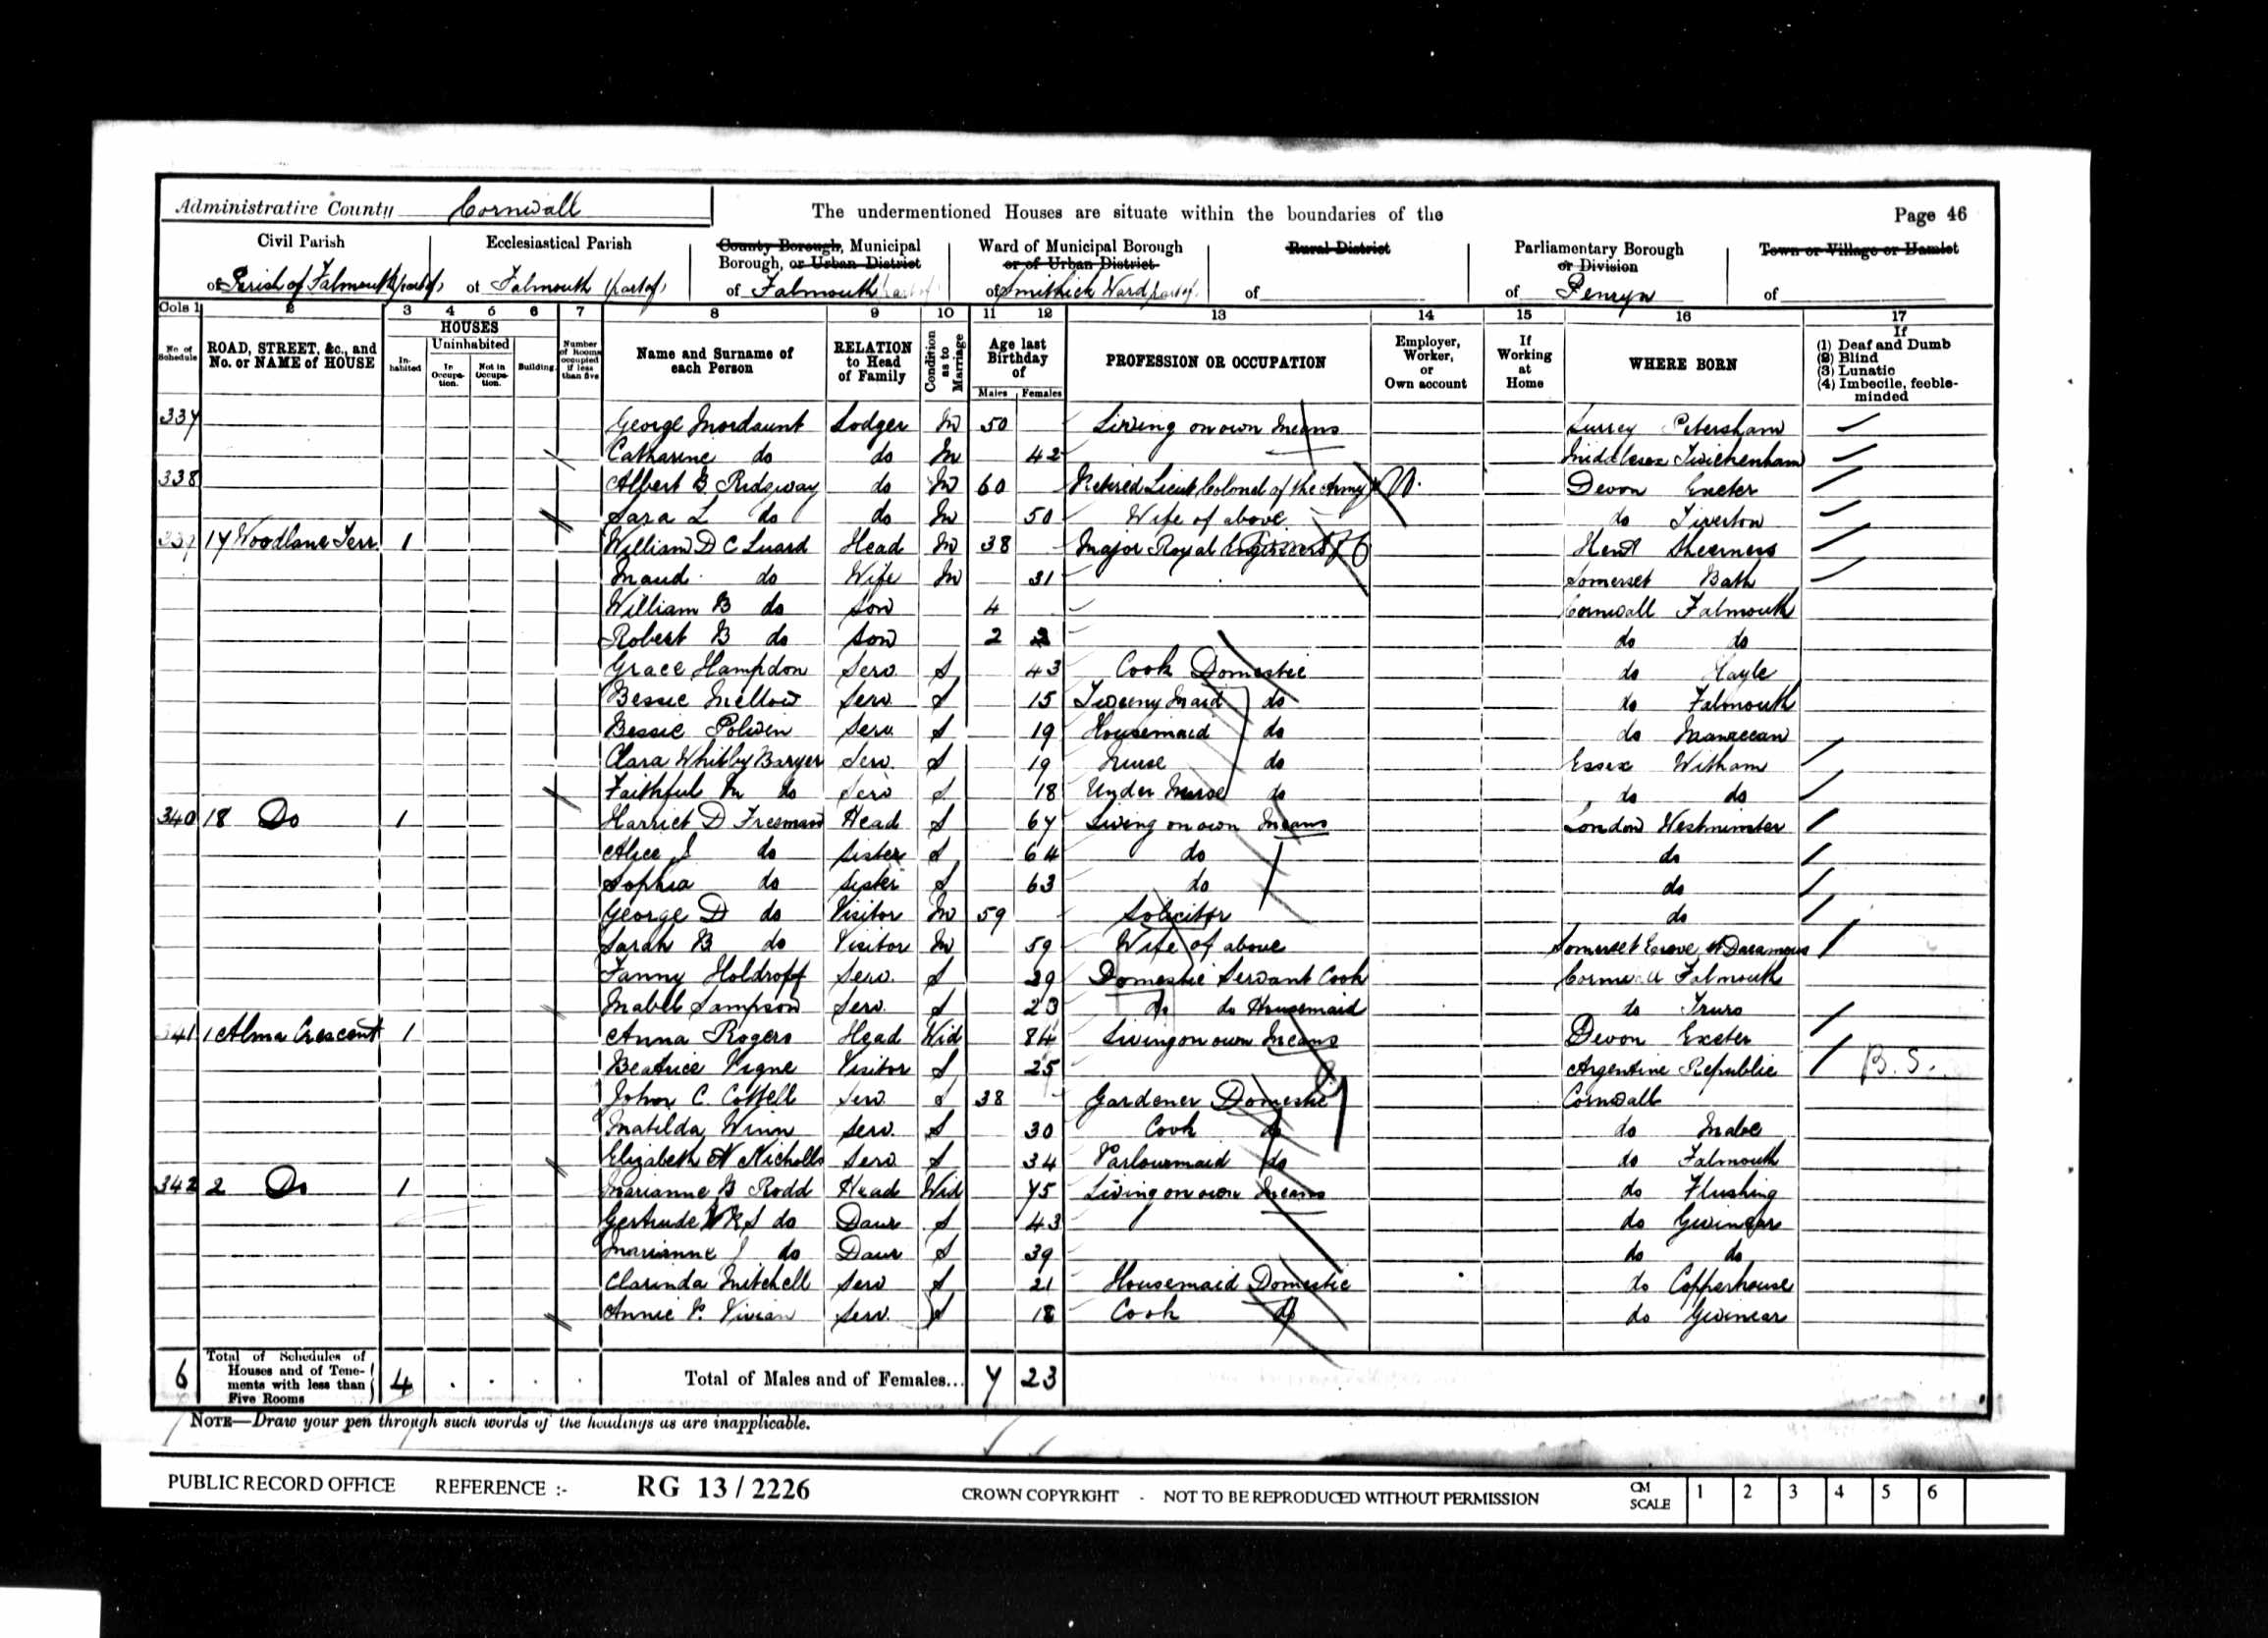 Administrative County Cornwall
The undermentioned Houses are situate within the boundaries of the
Page 46
Civil Parish
of Parish of Falmouth (part of)
Ecclesiastical Parish
of Falmouth (part of)
County Borough, Municipal
Borough, or Urban District
of Falmouth (part of)
Ward of Municipal Borough
or of Urban District
of Smithick Ward (part of)
Rural District
of
Parliamentary Borough
or Division
of Penryn
Town or Village or Hamlet
of
Cols 1 2 3 4 5 6 7 8 9 10 11 12 13 14 15 16 17
No. of Schedule
ROAD, STREET, &c., and No. or NAME of HOUSE
HOUSES
In-habited
Uninhabited
In Occupa-tion.
Not in Occupa-tion.
Building.
Number of Rooms occupied if less than five
Name and Surname of each Person
RELATION to Head of Family
Condition as to Marriage
Age last Birthday of
Males Females
PROFESSION OR OCCUPATION
Employer, Worker, or Own account
If Working at Home
WHERE BORN
If
(1) Deaf and Dumb
(2) Blind
(3) Lunatic
(4) Imbecile, feeble-minded
337 George Mordaunt Lodger M 50 Living on own Means Surrey Petersham
Catharine do do M 42 Middlesex Twickenham
338 Albert G. Ridgway do M 60 Retired Lieut Colonel of the Army Devon Exeter
Sara L do do M 50 Wife of above do Tiverton
339 17 Woodlane Terr. 1 William D C Luard Head M 38 Major Royal Engineers Kent Sheerness
Maud do Wife M 31 Somerset Bath
William B do Son 4 Cornwall Falmouth
Robert B do Son 2 2 do do
Grace Hampdon Serv. S 43 Cook Domestic do Hayle
Bessie Mellow Serv. S 15 Tweeny Maid do do Falmouth
Bessie Polwin Serv. S 19 Housemaid do do Manaccan
Clara Whitby Serv. S 19 Nurse do Essex Witham
Faithful M do Serv S 18 Under Nurse do do do
340 18 Do 1 Harriet D Freeman Head S 67 Living on own Means London Westminster
Alice J do Sister S 64 do do
Sophia do Sister S 63 do do
George D do Visitor M 59 Solicitor do
Sarah B do Visitor M 59 Wife of above Somerset
Fanny Holdroff Serv. S 29 Domestic Servant Cook Cornwall Falmouth
Mabel Sampson Serv. S 23 do do Housemaid do Truro
341 1 Alma Crescent 1 Anna Rogers Head Wid 84 Living on own Means Devon Exeter
Beatrice Vigne Visitor S 25 Argentine Republic B. S.
John C. Cottell Serv. S 38 Gardener Domestic Cornwall
Matilda Winn Serv. S 30 Cook do do Mabe
Elizabeth A Nicholls Serv S 34 Parlourmaid do do Falmouth
342 2 Do 1 Marianne B Rodd Head Wid 75 Living on own Means do Flushing
Gertrude do Daur S 43 do Gwinear
Marianne J do Daur S 39 do do
Clarinda Mitchell Serv S 21 Housemaid Domestic do Copperhouse
Annie P. Vivian Serv. S 18 Cook do do Gwinear
6 Total of Schedules of Houses and of Tene-ments with less than Five Rooms 4
Total of Males and of Females... 7 23
NOTE—Draw your pen through such words of the headings as are inapplicable.
PUBLIC RECORD OFFICE REFERENCE :- RG 13 / 2226 CROWN COPYRIGHT - NOT TO BE REPRODUCED WITHOUT PERMISSION CM SCALE 1 2 3 4 5 6